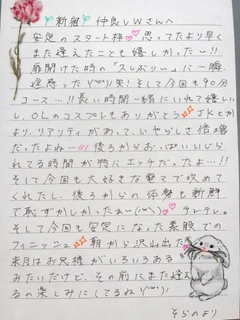 新宿 仲良しWさんへ
安定のスタート枠 思ってたより早く
また逢えたことも嬉しかった〜!!
扉開けた時の「久しぶり〜」に一瞬
迷った(笑)笑! そして今回も90分
コース…!! 長い時間一緒にいれて嬉しい
し、OLのコスプレもありがとう JKとかより、
リアリティがあって、いやらしさ倍増
だったよね…!!! 後ろからおっぱいいじら
れてる時間が特にエッチだったよ…!!
そして今回も大好きな電マで攻めて
くれたし、後ろからの体勢も新鮮
で恥ずかしかったぁ〜 テレテレ。
そして今回も安定になった素股での
フィニッシュ 朝から沢山出た
来月はお兄様がいろいろある
みたいだけど、その前にまた逢え
るの楽しみにしてるね
そらのより